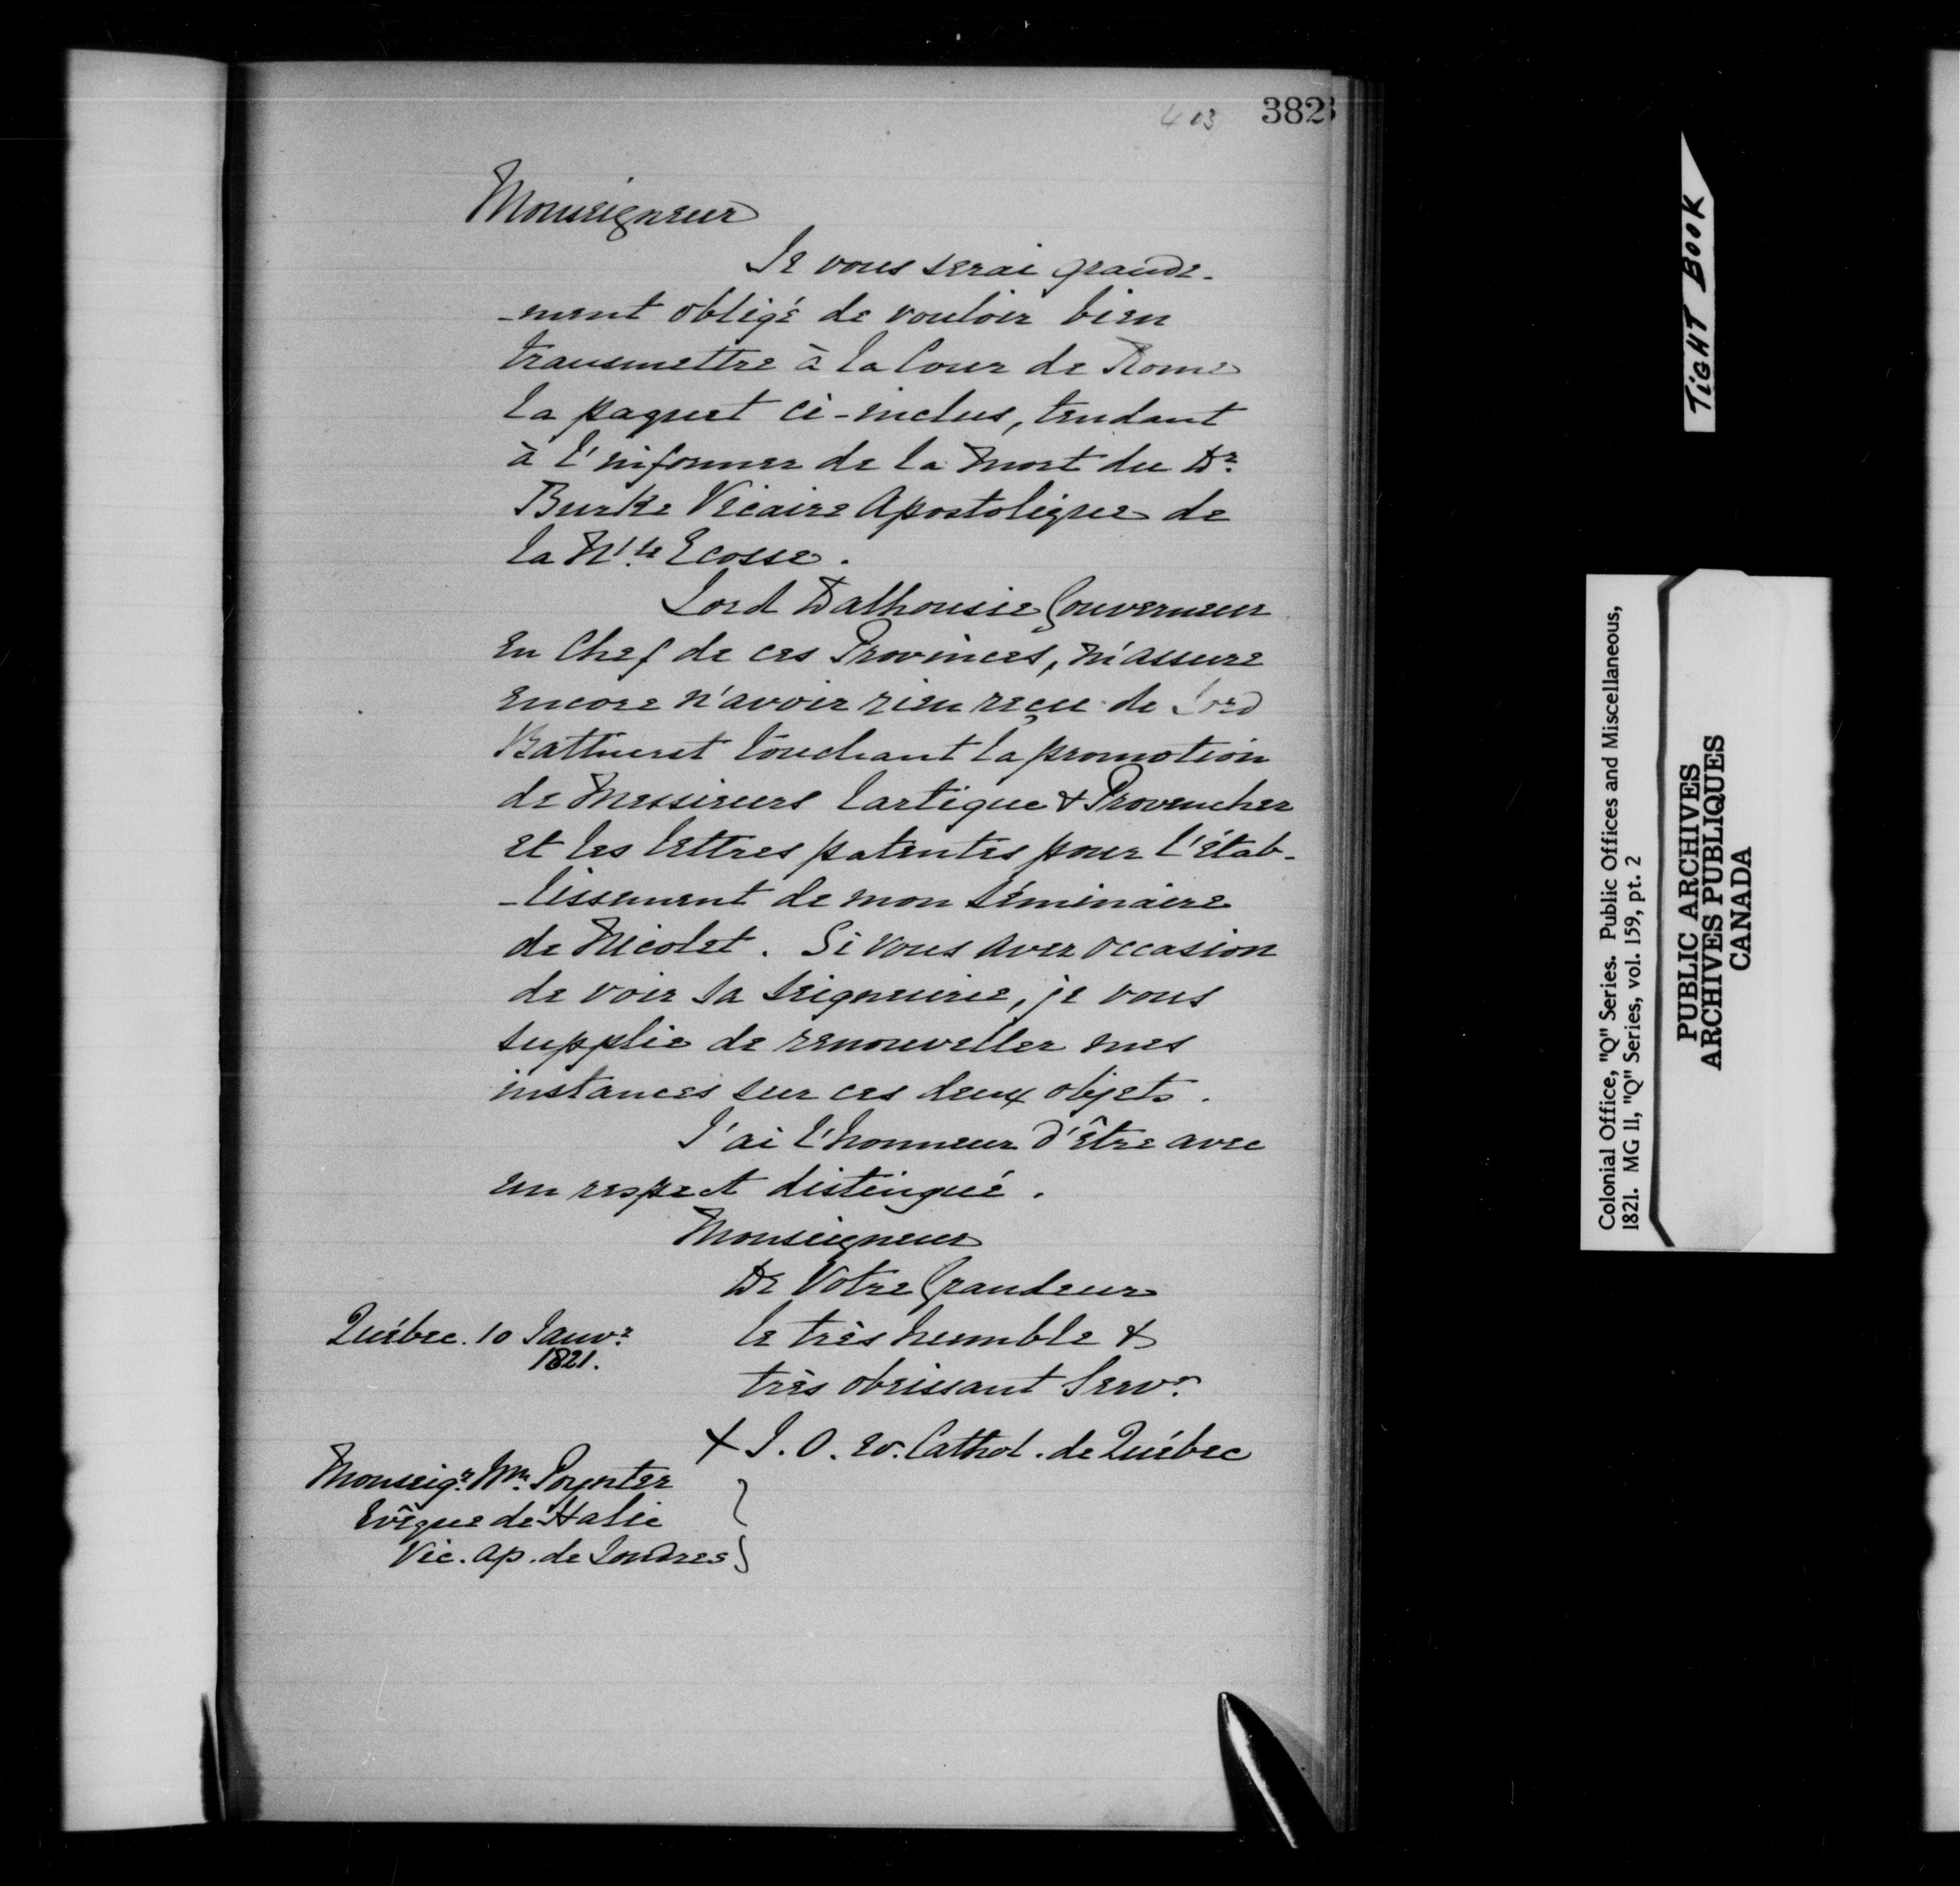 403 382
Monseigneur
Je vous serai grande-
-ment obligé de vouloir bien
transmettre à la Cour de Rome
la paquet ci-inclus, tendant
à l'informer de la mort du Dr.
Burke Vicaire Apostolique de
la N'.le Ecosse.
Lord Dalhousie Gouverneur
en Chef de ces Provinces, m'assure
encore n'avoir rien reçu de Lord
Bathurst touchant la promotion
de Messieurs Lartigue & Provencher
et les lettres patentes pour l'étab-
-lissement de mon Séminaire
de Nicolet. Si vous avez occasion
de voir Sa Seigneurie, je vous
supplie de renouveller mes
instances sur ces deux objets.
J'ai l'honneur d'être avec
un respect distingué.
Monseigneur
De Votre Grandeur
Québec. 10 Janvr.
1821.
le très humble &
très obeissant Servr.
+ J. O. Ev. Cathol. de Québec
Monseigr. Wm. Poynter
Evêque de Halie
Vic. Ap. de Londres
TIGHT BOOK
Colonial Office, "Q" Series. Public Offices and Miscellaneous,
1821. MG 11, "Q" Series, vol. 159, pt. 2
PUBLIC ARCHIVES
ARCHIVES PUBLIQUES
CANADA